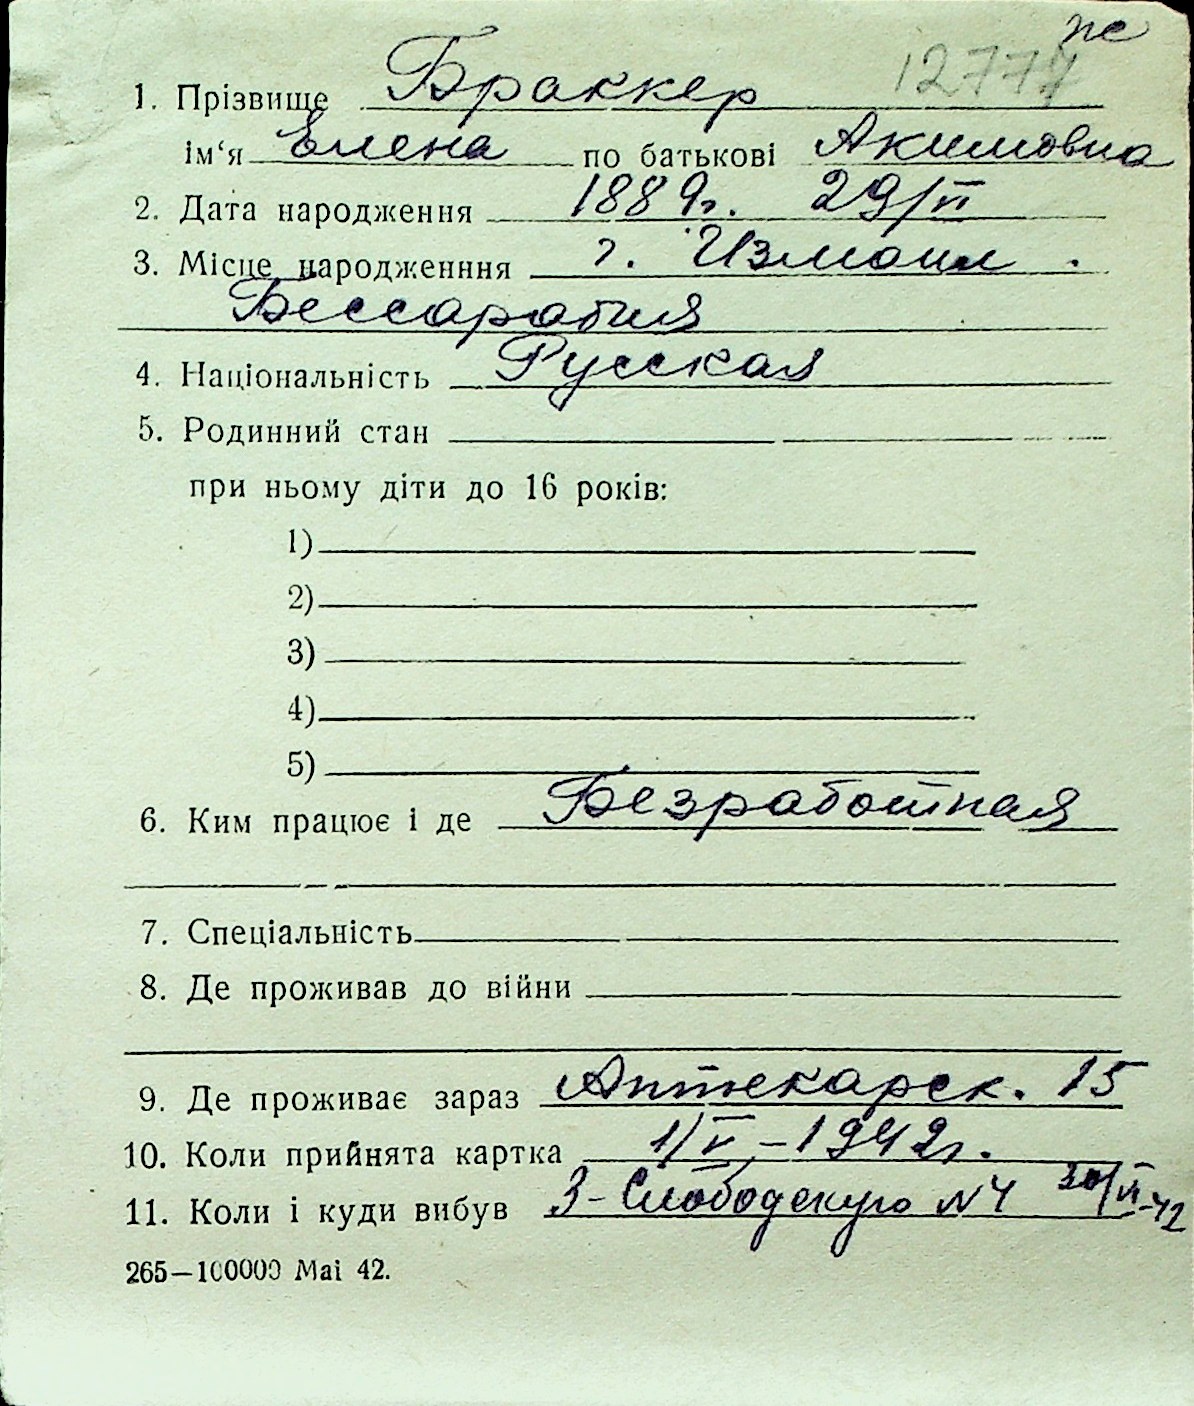 же
12777
1. Прізвище Браккер
ім‘я Елена по батькові Акимовна
2. Дата народження 1889г. 29/VI
3. Місце народженння г. Измаил.
Бессарабия
4. Національність Русская
5. Родинний стан
при ньому діти до 16 років:
1)
2)
3)
4)
5)
6. Ким працює і де Безработная
7. Спеціальність
8. Де проживав до війни
9. Де проживає зараз Аптекарск. 15
10. Коли прийнята картка 1/V-1942г.
11. Коли і куди вибув 3-Слободскую N4 30/VI-42
265—100000 Mai 42.